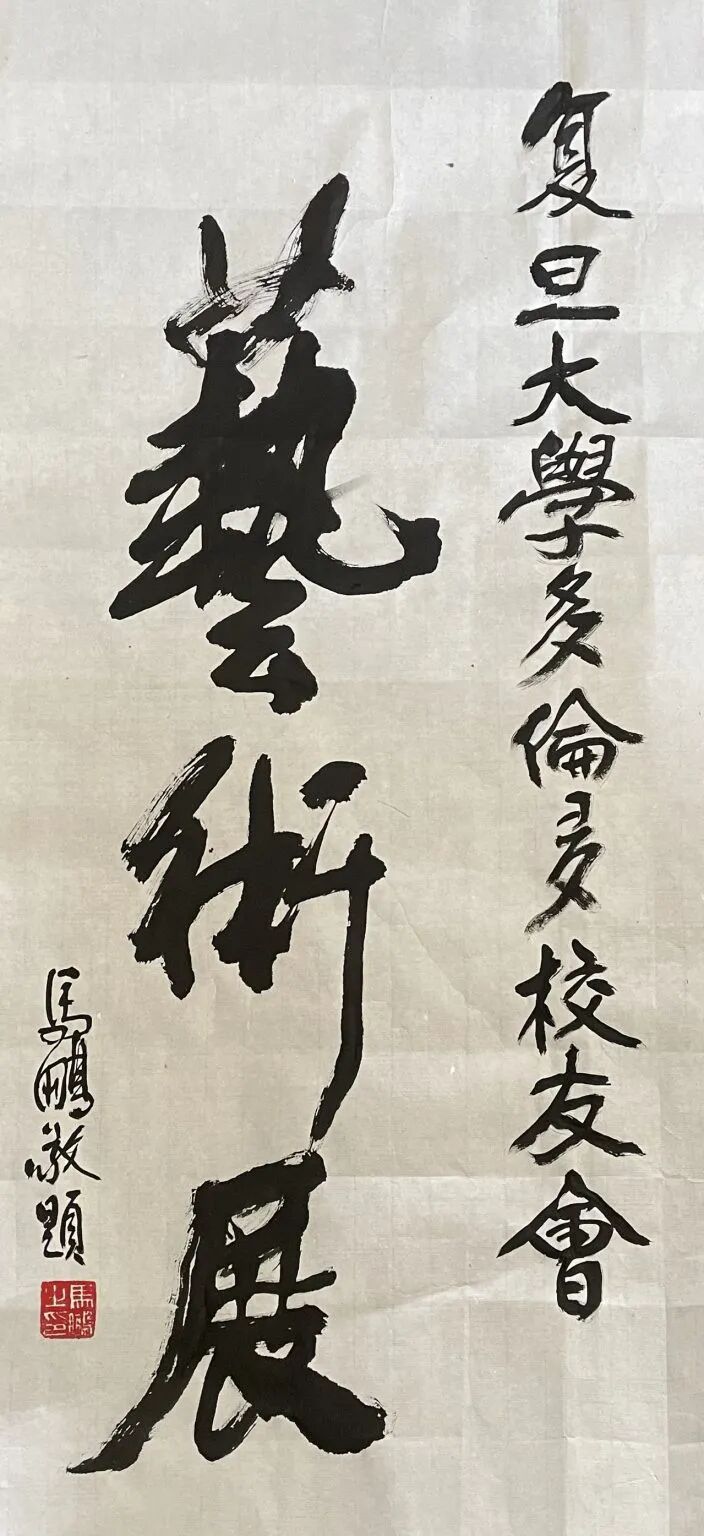 复旦大學多倫多校友會
藝術展
馬鵬敬題
馬鵬之印